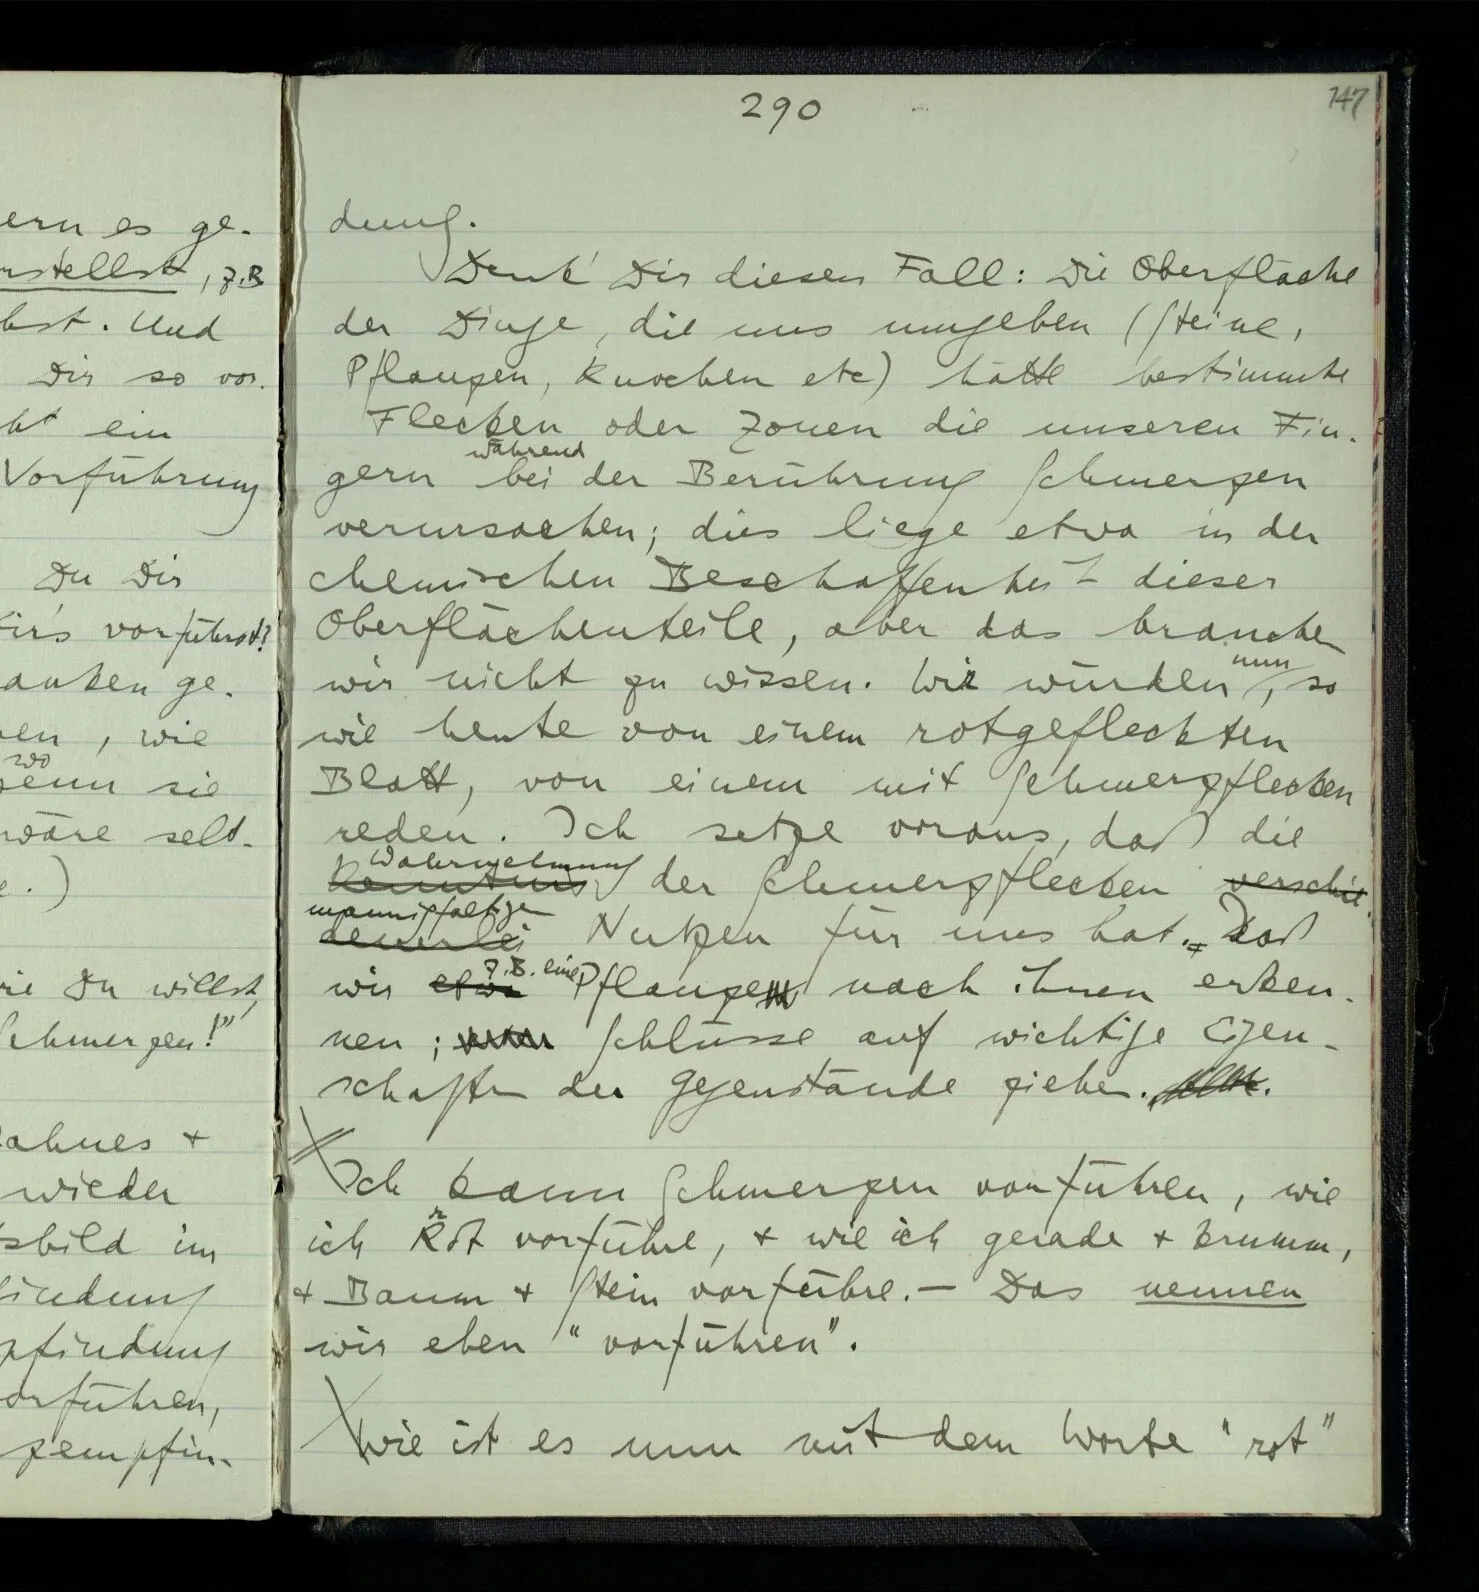 ern es ge-
rstellst, z.B
bst. Und
Dir so vor.
ht ein
Vorführung
Du Dir
Dir's vorführst?
anken ge-
en, wie
wo
wenn sie
wäre selt-
e.)
wie Du willst,
Schmerzen!"
ahnes +
wieder
sbild im
findung
pfindung
orführen,
zempfin-
290
147
dung.
Denk' Dir diesen Fall: Die Oberfläche
der Dinge, die uns umgeben (Steine,
Pflanzen, Knochen etc) hätte bestimmte
Flecken oder Zonen die unseren Fin-
während
gern bei der Berührung Schmerzen
verursachen; dies liege etwa in der
chemischen Beschaffenheit dieser
Oberflächenteile, aber das brauchen
nun
wir nicht zu wissen. Wir würden, so
wie heute von einem rotgefleckten
Blatt, von einem mit Schmerzflecken
reden. Ich setze voraus, daß die
Wahrnehmung
Kenntnis der Schmerzflecken verschie-
mannigfaltigen
denerlei Nutzen für uns hat. Daß
z.B. eine
wir etwa Pflanze nach ihnen erken-
nen; Schlüsse auf wichtige Eigen-
schaften der Gegenstände ziehen.
Ich kann Schmerzen vorführen, wie
r
ich Rot vorführe, + wie ich gerade + krumm,
+ Baum + Stein vorführe. — Das nennen
wir eben "vorführen".
Wie ist es nun mit dem Worte "rot"